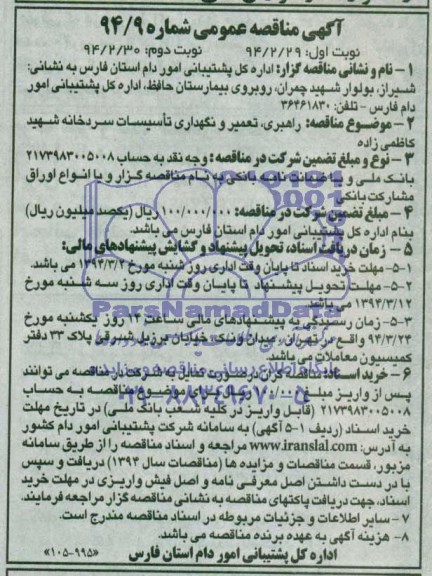 آگهی مناقصه عمومی شماره ۹۴/۹
نوبت اول: ۹۴/۲/۲۹ نوبت دوم: ۹۴/۲/۳۰
۱ – نام و نشانی مناقصه گزار: اداره کل پشتیبانی امور دام استان فارس به نشانی:
شیراز، بولوار شهید چمران، روبروی بیمارستان حافظ، اداره کل پشتیبانی امور
دام فارس – تلفن: ۳۶۴۶۱۸۳۰
۲ – موضوع مناقصه: راهبری، تعمیر و نگهداری تأسیسات سردخانه شهید
کاظمی زاده
۳ – نوع و مبلغ تضمین شرکت در مناقصه: وجه نقد به حساب ۲۱۷۳۹۸۳۰۰۵۰۰۸
بانک ملی و یا ضمانت نامه بانکی به نام مناقصه گزار و یا انواع اوراق
مشارکت بانکی
۴ – مبلغ تضمین شرکت در مناقصه: ۱۰۰/۰۰۰/۰۰۰ ریال (یکصد میلیون ریال)
بنام اداره کل پشتیبانی امور دام استان فارس می باشد.
۵ – زمان دریافت اسناد، تحویل پیشنهاد و گشایش پیشنهادهای مالی:
۵-۱- مهلت خرید اسناد تا پایان وقت اداری روز شنبه مورخ ۱۳۹۴/۳/۲ می باشد.
۵-۲- مهلت تحویل پیشنهاد تا پایان وقت اداری روز سه شنبه مورخ
۱۳۹۴/۳/۱۲ می باشد.
۵-۳- زمان رسیدگی به پیشنهادهای مالی ساعت ۱۴ روز یکشنبه مورخ
۹۴/۳/۲۴ واقع در تهران، میدان ونک، خیابان برزیل شرقی پلاک ۳۳ دفتر
کمیسیون معاملات می باشد.
۶ – خرید اسناد: مناقصه گران در صورت تمایل به شرکت در مناقصه می توانند
پس از واریز مبلغ ریال بابت خرید اسناد موضوع مناقصه به حساب
۲۱۷۳۹۸۳۰۰۵۰۰۸ (قابل واریز در کلیه شعب بانک ملی) در تاریخ مهلت
خرید اسناد (ردیف ۱-۵ آگهی) به سامانه شرکت پشتیبانی امور دام کشور
به آدرس: www.iranslal.com مراجعه و اسناد مناقصه را از طریق سامانه
مزبور، قسمت مناقصات و مزایده ها (مناقصات سال ۱۳۹۴) دریافت و سپس
با در دست داشتن اصل معرفی نامه و اصل فیش واریزی در مهلت خرید
اسناد، جهت دریافت پاکتهای مناقصه به نشانی مناقصه گزار مراجعه فرمایند.
۷ – سایر اطلاعات و جزئیات مربوطه در اسناد مناقصه مندرج است.
۸ – هزینه آگهی به عهده برنده مناقصه می باشد.
اداره کل پشتیبانی امور دام استان فارس «۱۰۵-۹۹۵»
ParsNamadData
پایگاه اطلاع رسانی مناقصه و مزایده
۰۲۱-۸۸۳۴۹۶۷۰-۵